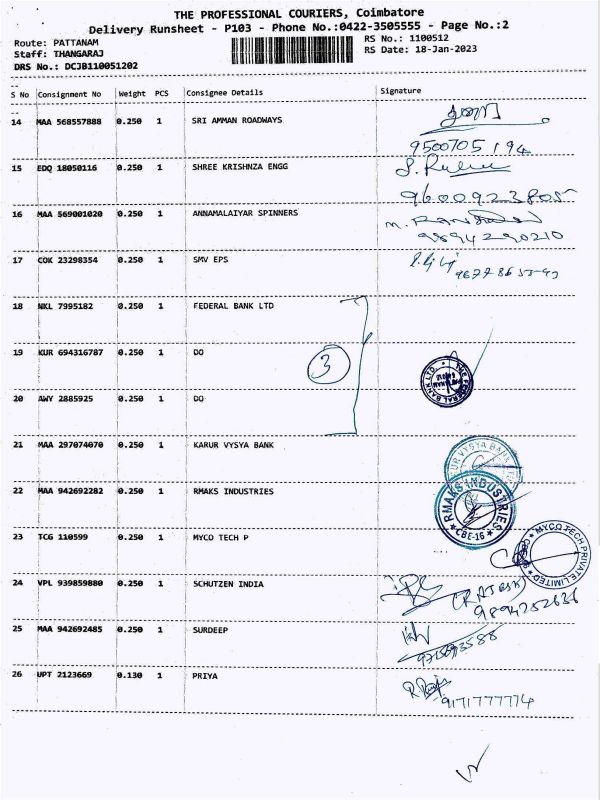 THE PROFESSIONAL COURIERS, Coimbatore
Delivery Runsheet - P103 - Phone No.:0422-3505555 - Page No.:2
Route: PATTANAM RS No.: 1100512
Staff: THANGARAJ RS Date: 18-Jan-2023
DRS No.: DCJB110051202
S No Consignment No Weight PCS Consignee Details Signature
14 MAA 568557888 0.250 1 SRI AMMAN ROADWAYS
9500705194
15 EDQ 18050116 0.250 1 SHREE KRISHNZA ENGG
9600923805
16 MAA 569001020 0.250 1 ANNAMALAIYAR SPINNERS
9894290210
17 COK 23298354 0.250 1 SMV EPS
18 NKL 7995182 0.250 1 FEDERAL BANK LTD
19 KUR 694316787 0.250 1 DO
3
THE FEDERAL BANK LTD.
20 AWY 2885925 0.250 1 DO
21 MAA 297074070 0.250 1 KARUR VYSYA BANK
KARUR VYSYA BANK
22 MAA 942692282 0.250 1 RMAKS INDUSTRIES
RMAKS INDUSTRIES
CBE-16
23 TCG 110599 0.250 1 MYCO TECH P
MYCO TECH PRIVATE LIMITED
24 VPL 939859880 0.250 1 SCHUTZEN INDIA
(RAJESH)
9894252636
25 MAA 942692485 0.250 1 SURDEEP
26 UPT 2123669 0.130 1 PRIYA
9171777774